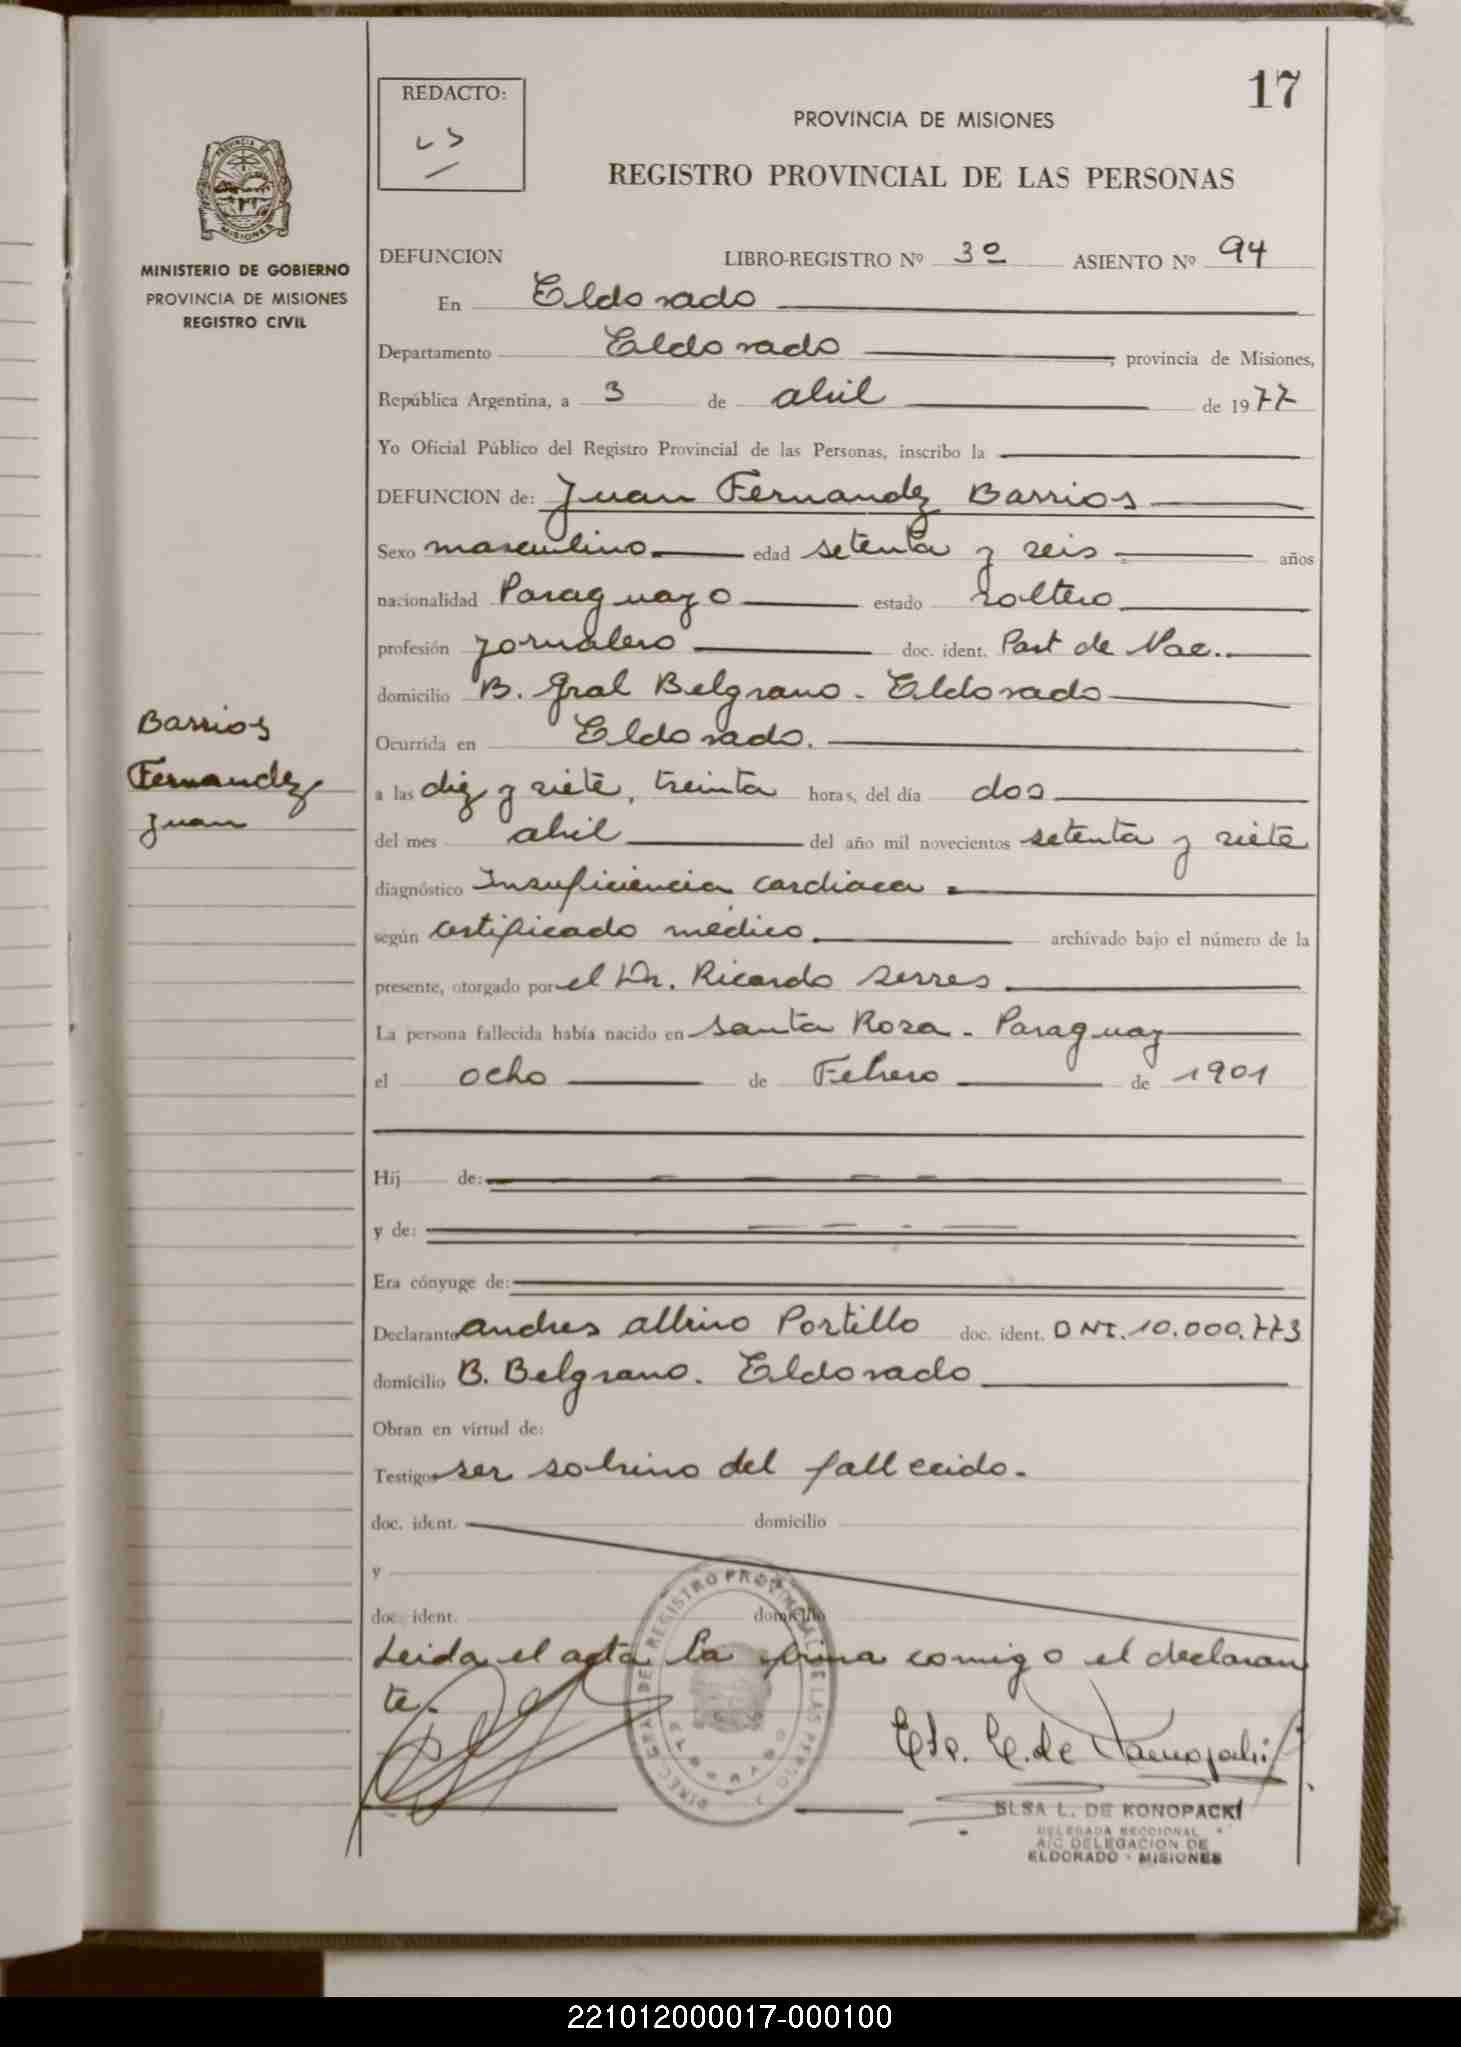 17
REDACTO:
PROVINCIA DE MISIONES
REGISTRO PROVINCIAL DE LAS PERSONAS
MINISTERIO DE GOBIERNO
PROVINCIA DE MISIONES
REGISTRO CIVIL
DEFUNCION LIBRO-REGISTRO Nº 3º ASIENTO Nº 94
En Eldorado
Departamento Eldorado, provincia de Misiones,
República Argentina, a 3 de abril de 1977
Yo Oficial Público del Registro Provincial de las Personas, inscribo la
DEFUNCION de: Juan Fernandez Barrios
Sexo masculino edad setenta y seis años
nacionalidad Paraguayo estado soltero
profesión jornalero doc. ident. Part de Nac.
domicilio B. Gral Belgrano - Eldorado
Barrios
Fernandez
Juan
Ocurrida en Eldorado.
a las diez y siete, treinta horas, del día dos
del mes abril del año mil novecientos setenta y siete
diagnóstico Insuficiencia cardiaca
según certificado médico archivado bajo el número de la
presente, otorgado por el Dr. Ricardo Serres
La persona fallecida había nacido en Santa Rosa - Paraguay
el ocho de Febrero de 1901
Hij de:
y de:
Era cónyuge de:
Declarante andres albino Portillo doc. ident. DNI. 10.000.773
domicilio B. Belgrano. Eldorado
Obran en virtud de:
Testigos ser sobrino del fallecido.
doc. ident. domicilio
y
doc. ident. domicilio
Leida el acta la firma comigo el declaran
te.
DIREC. GRAL DEL REGISTRO PROVINCIAL DE LAS PERSO
ELDORADO
ELSA L. DE KONOPACKI
DELEGADA SECCIONAL
A/C DELEGACION DE
ELDORADO - MISIONES
221012000017-000100